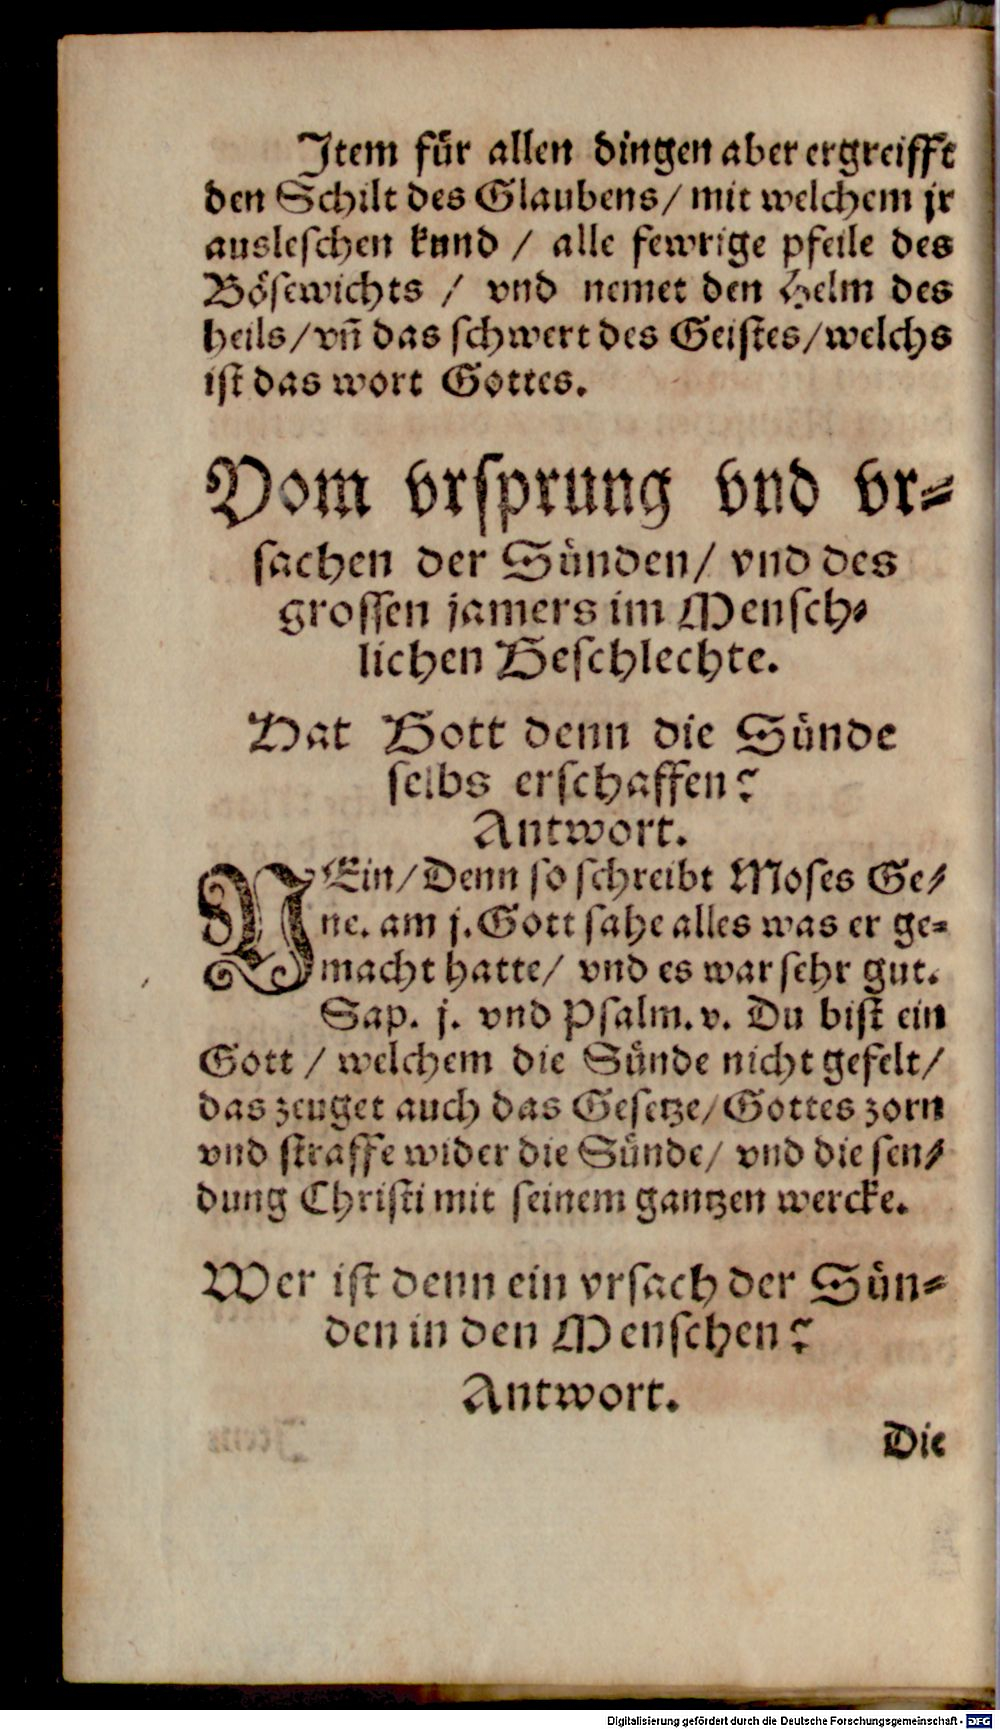 Item für allen dingen aber ergreifft
den Schilt des Glaubens/ mit welchem jr
ausleschen kund / alle fewrige pfeile des
Bösewichts / vnd nemet den Helm des
heils/vñ das schwert des Geistes/welchs
ist das wort Gottes.
Vom vrsprung vnd vr-
sachen der Sünden/ vnd des
grossen jamers im Mensch-
lichen Geschlechte.
Hat Gott denn die Sünde
selbs erschaffen?
Antwort.
NEin/Denn so schreibt Moses Ge-
ne. am j. Gott sahe alles was er ge-
macht hatte/ vnd es war sehr gut.
Sap. j. vnd Psalm. v. Du bist ein
Gott / welchem die Sünde nicht gefelt/
das zeuget auch das Gesetze/Gottes zorn
vnd straffe wider die Sünde/ vnd die sen-
dung Christi mit seinem gantzen wercke.
Wer ist denn ein vrsach der Sün-
den in den Menschen?
Antwort.
Die
Digitalisierung gefördert durch die Deutsche Forschungsgemeinschaft - DFG